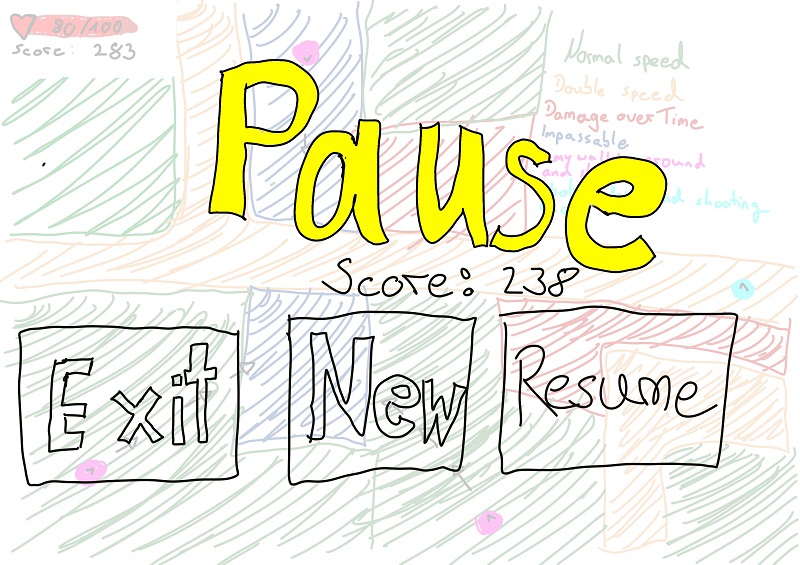 80/100
Score: 283
Normal speed
Double speed
Damage over Time
Impassable
ound
and
d shooting
Pause
Score: 238
Exit
New
Resume